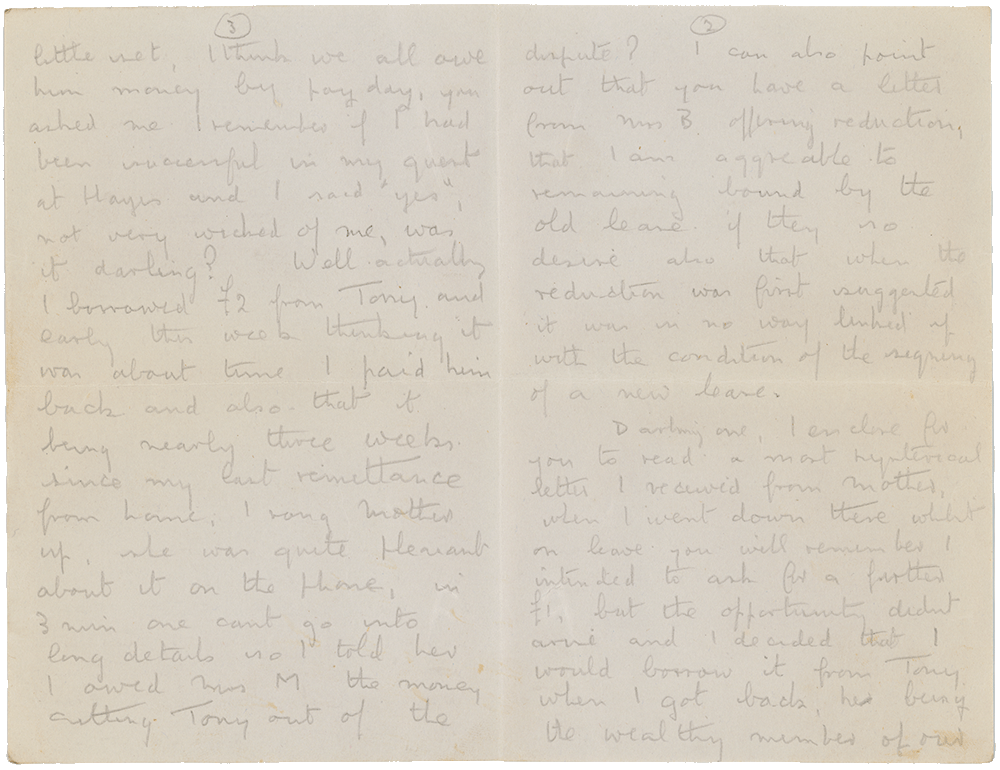 2
dispute? I can also point
out that you have a letter
from Mrs B offering reduction,
that I am aggreable to
remaining bound by the
old lease if they so
desire also that when the
reduction was first suggested
it was in no way linked up
with the condition of the signing
of a new lease.
Darling one, I enclose for
you to read a most hysterical
letter I received from Mother,
when I went down there whilst
on leave you will remember I
intended to ask for a further
£1, but the opportunity didnt
arise and I decided that I
would borrow it from Tony
when I got back, he being
the wealthy member of our
3
little set, I think we all owe
him money by pay day, you
asked me I remember if I had
been successful in my quest
at Hayes and I said "yes",
not very wicked of me, was
it darling? Well actually
I borrowed £2 from Tony and
early this week thinking it
was about time I paid him
back and also that it
being nearly three weeks
since my last remittance
from home, I rang Mother
up, she was quite pleasant
about it on the phone, in
3 min one cant go into
long details so I told her
I owed Mrs M the money
cutting Tony out of the